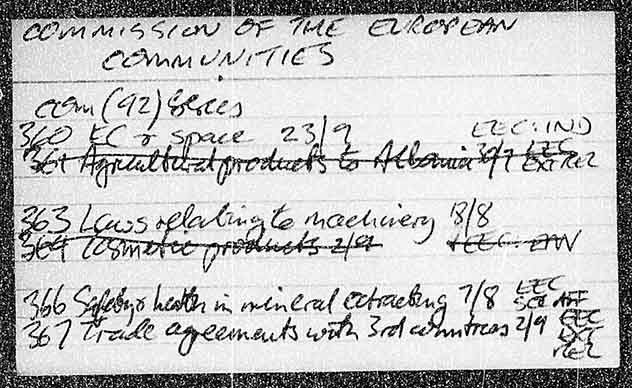 COMMISSION OF THE EUROPEAN
COMMUNITIES
COM (92) Series
360 EC & space 23/9 EEC: IND
361 Agricultural products to Albania 30/7 EEC
EXT REL
363 Laws relating to machinery 13/8
364 Cosmetic products 2/9 EEC: ENV
366 Safety & health in mineral extracting 7/8 EEC
SOC AFF
367 Trade agreements with 3rd countries 2/9 EEC
EXT
REL